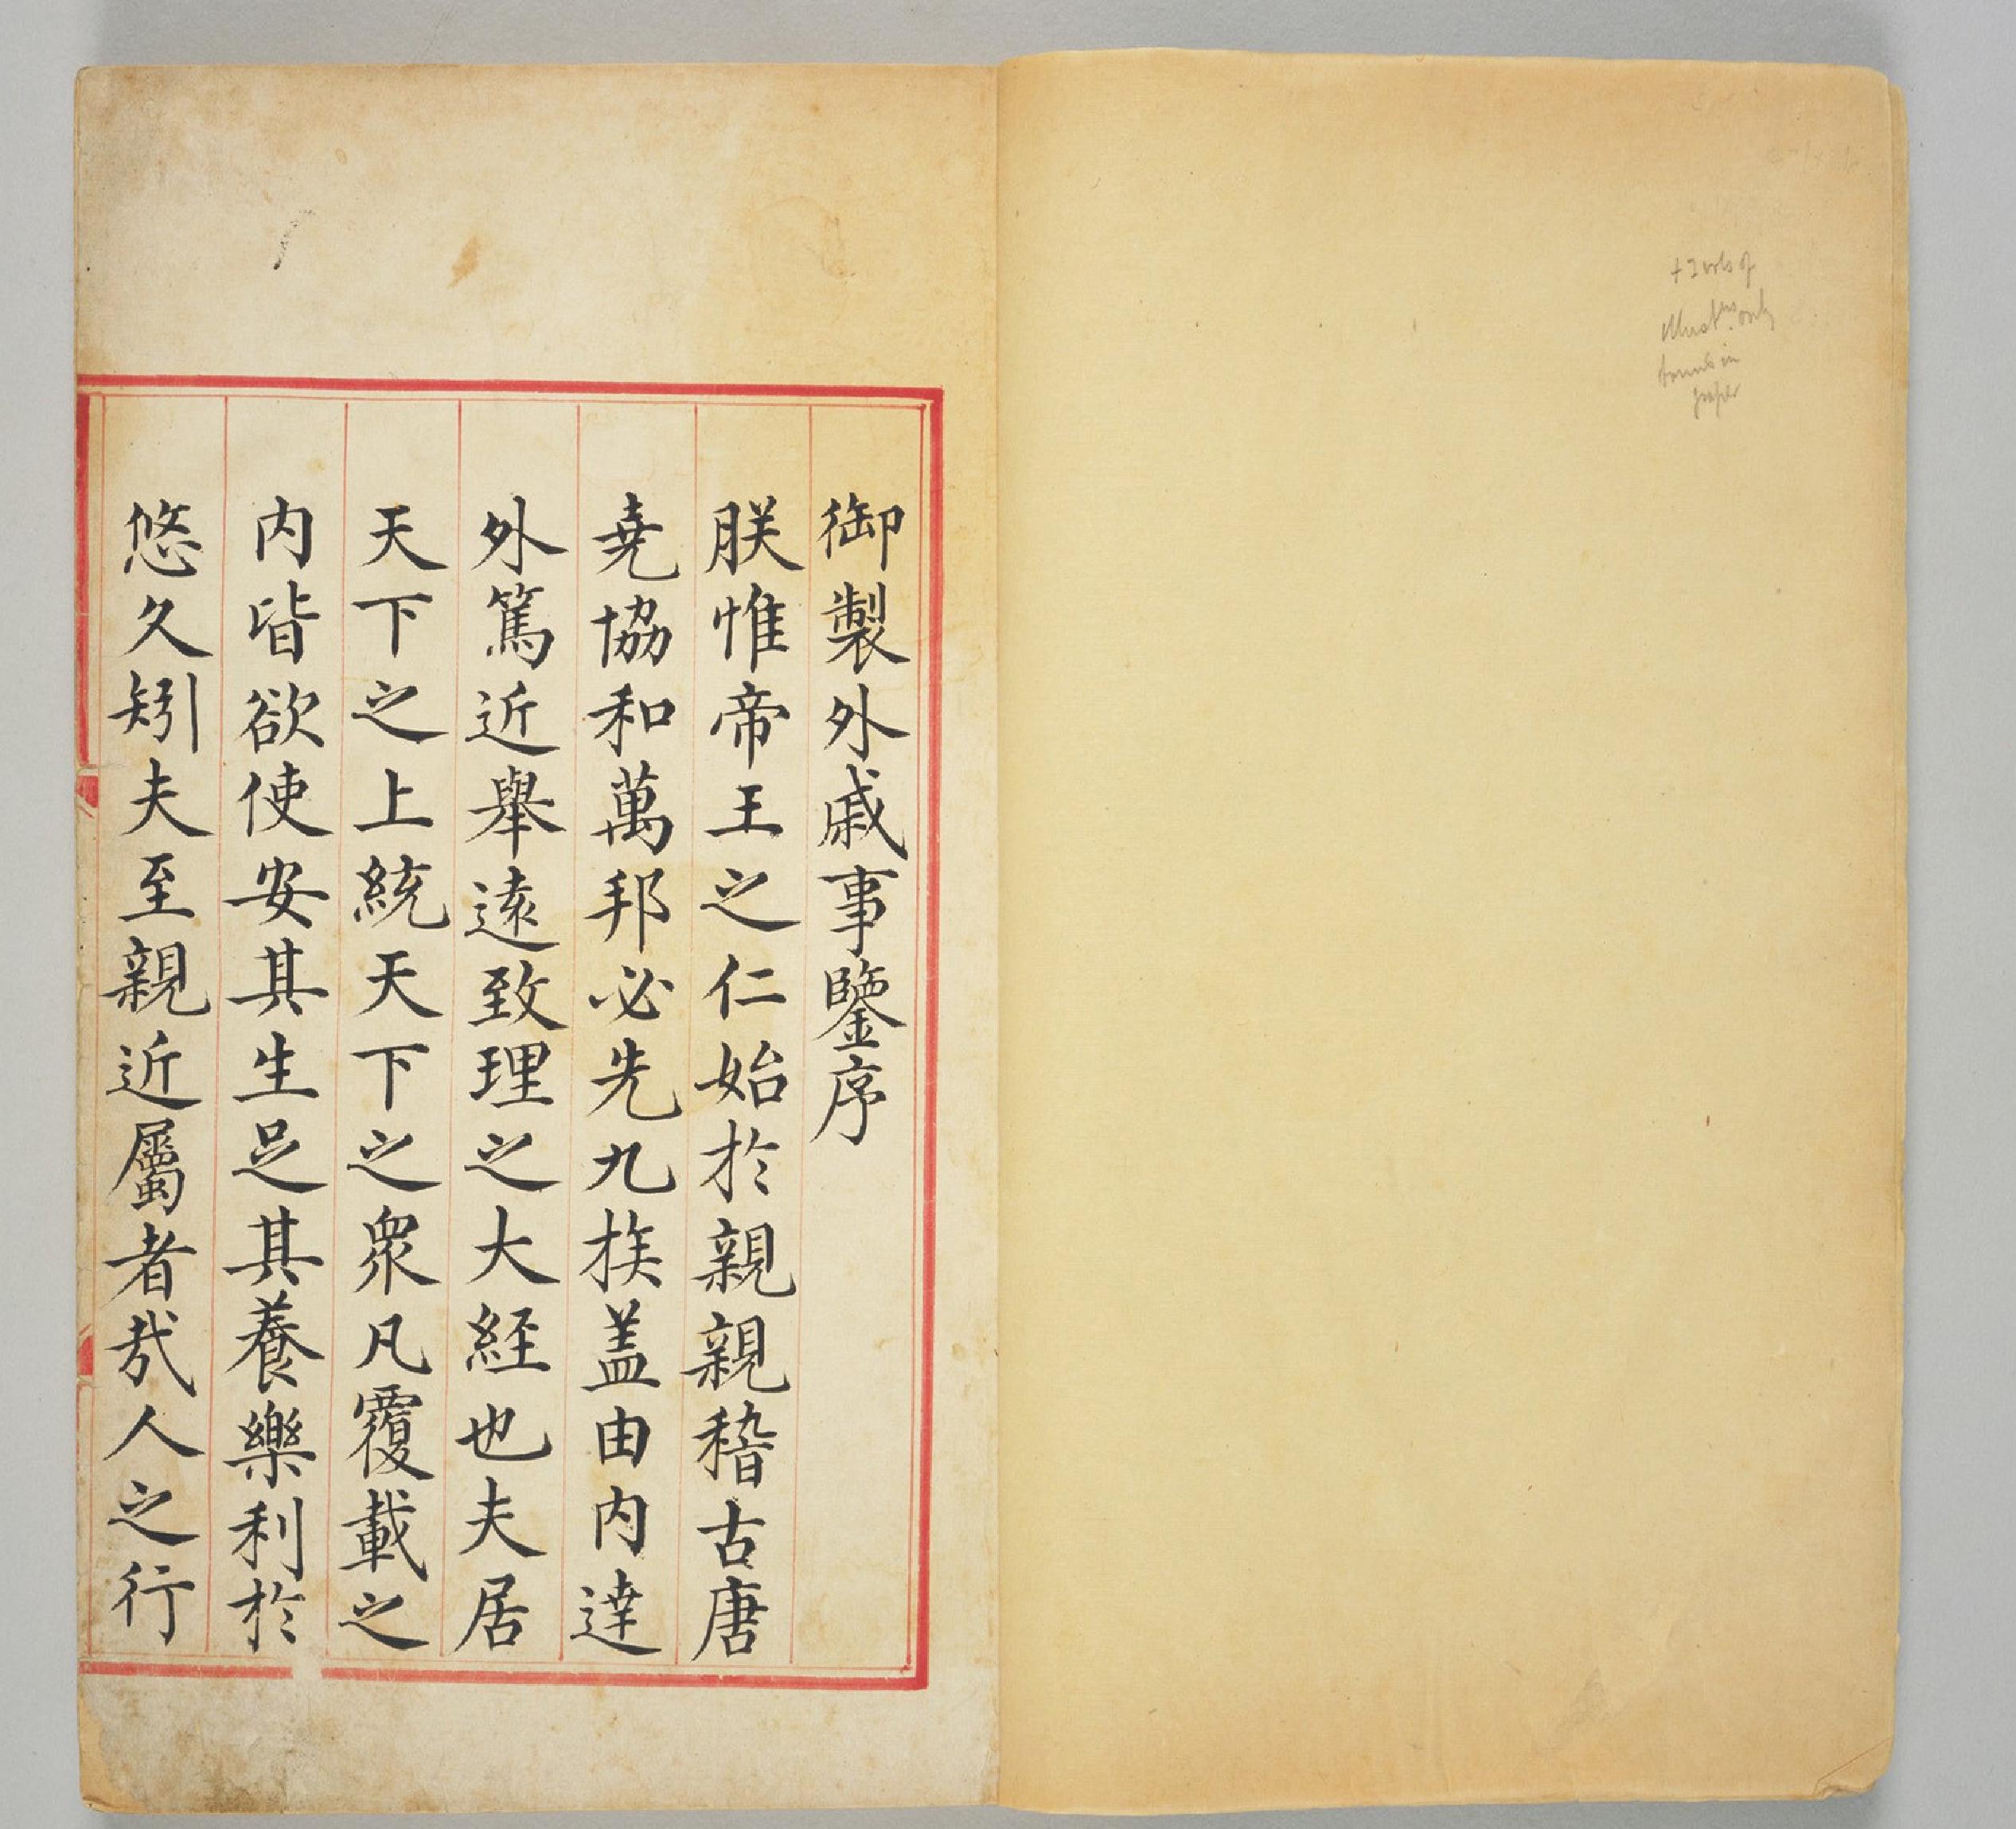 御製外戚事鑒序
朕惟帝王之仁始於親親稽古唐
堯協和萬邦必先九族盖由内達
外篤近舉遠致理之大經也夫居
天下之上統天下之衆凡覆載之
内皆欲使安其生足其養樂利於
悠久矧夫至親近屬者㦲人之行
+ 2 vols of
illustns only
bound in
paper